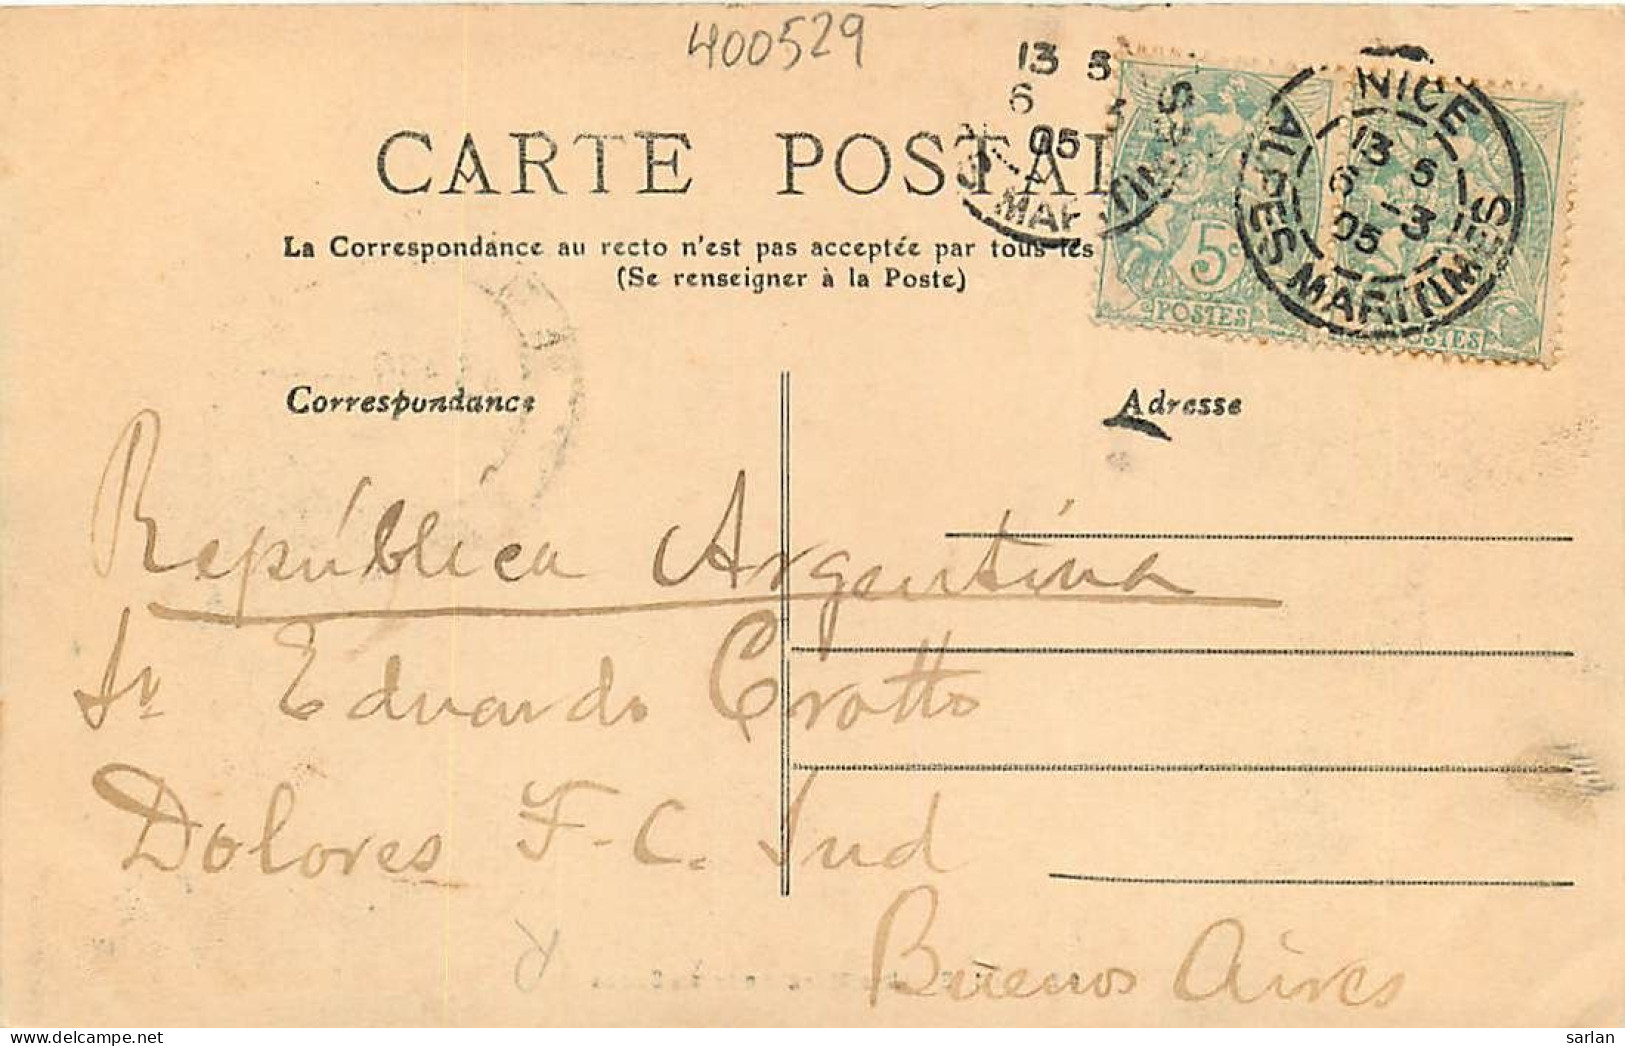 400529
CARTE POSTAL
La Correspondance au recto n'est pas acceptée par tous les
(Se renseigner à la Poste)
13 5
6
05
MAR
5c
POSTES
NICE
13 5
6 -3
05
ALPES MARITIMES
Correspondance
Adresse
República Argentina
Sr Eduardo Crotto
Dolores F.C. Sud
Buenos Aires
sarlan